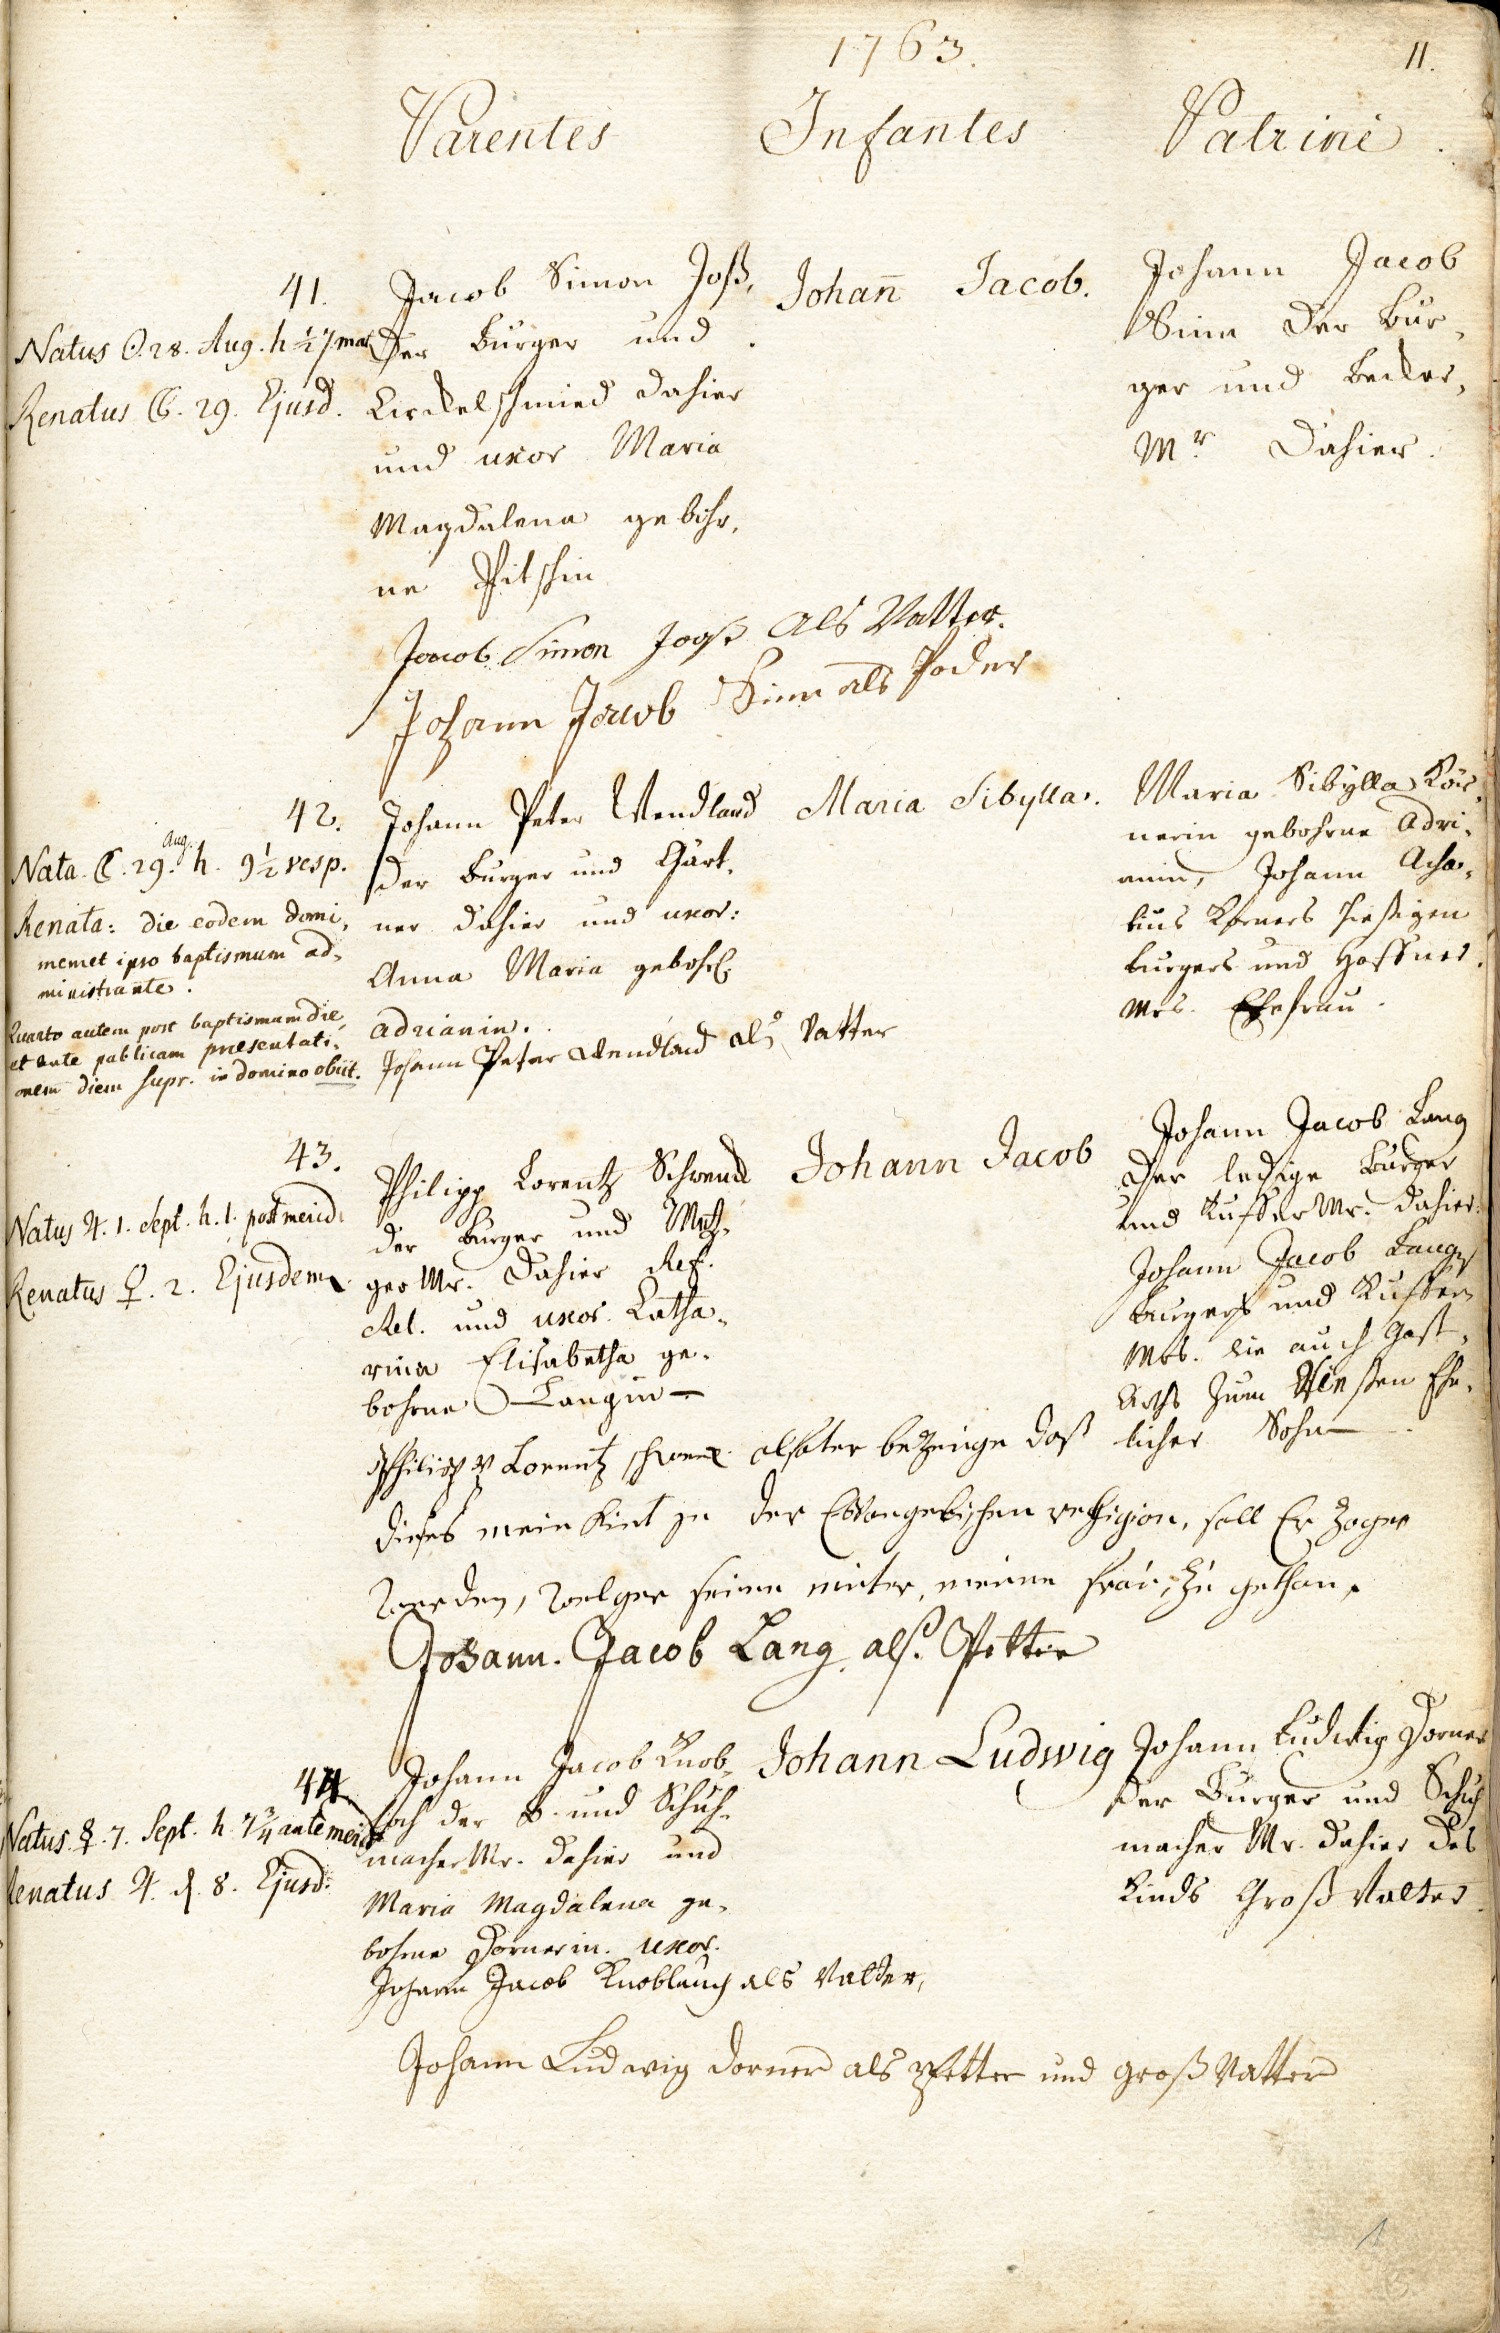 1763.
11.
Parentes Infantes Patrini.
41.
Natus ☉. 28. Aug. h ½7 mat.
Renatus ☾. 29. Ejusd.
Jacob Simon Joß,
der Bürger und
Zirckelschmied dahier
und uxor Maria
Magdalena gebohr,
ne Pitschin
Johan̄ Jacob.
Johann Jacob
Sinn der Bür,
ger und Becker,
Mr. dahier.
Jacob Simon Joß als Vatter.
Johann Jacob Sinn als Poder
42.
Nata. ☾. 29. Aug. h. 9½ vesp.
Renata: die eodem domi,
memet ipso baptismum ad,
ministrante.
Quarto autem post baptismum die,
et ante publicam presentati,
onem diem supr. in domino obiit.
Johann Peter Wendland
der Burger und Gärt,
ner dahier und uxor:
Anna Maria gebohr.
Adrianin.
Maria Sibylla.
Maria Sibylla Kör,
nerin gebohrne Adri,
anin, Johann Acha,
tius Körners hießigen
burgers und Haffner,
Mrs. Ehefrau.
Johann Peter Wendland als Vatter
43.
Natus ♃. 1. Sept. h. 1. post merid.
Renatus ♀. 2. Ejusdem
Philipp Lorentz Schwend
der Burger und Metz,
ger Mr. dahier Ref.
Rel. und uxor. Catha,
rina Elisabetha ge,
bohrne Langin
Johann Jacob
Johann Jacob Lang
der ledige Burger
und Kuffer Mr. dahier.
Johann Jacob Langs
burgers und Kuffer
Mrs. wie auch Gast,
wirths zum Hirschen Ehe,
licher Sohn
Philipp Lorentz schwend alß vater bezeuge daß
dieses mein Kint in der Evangelischen religion, soll Er zogen
werden, welger seine muter, meine frau, zu gethan,
Johann. Jacob Lang. alß. Petter
44
Natus ☿. 7. Sept. h. 7¾ ante merid.
Renatus ♃. d. 8. Ejusd.
Johann Jacob Knob,
loch der B. und Schuh,
macher Mr. dahier und
Maria Magdalena ge,
bohrne Dornerin. uxor.
Johann Ludwig
Johann Ludwig Dorner
der Burger und Schuh
macher Mr. dahier des
Kinds Groß Vatter.
Johann Jacob Knoblauch als Vatter,
Johann Ludwig Dorner als pfetter und groß Vatter